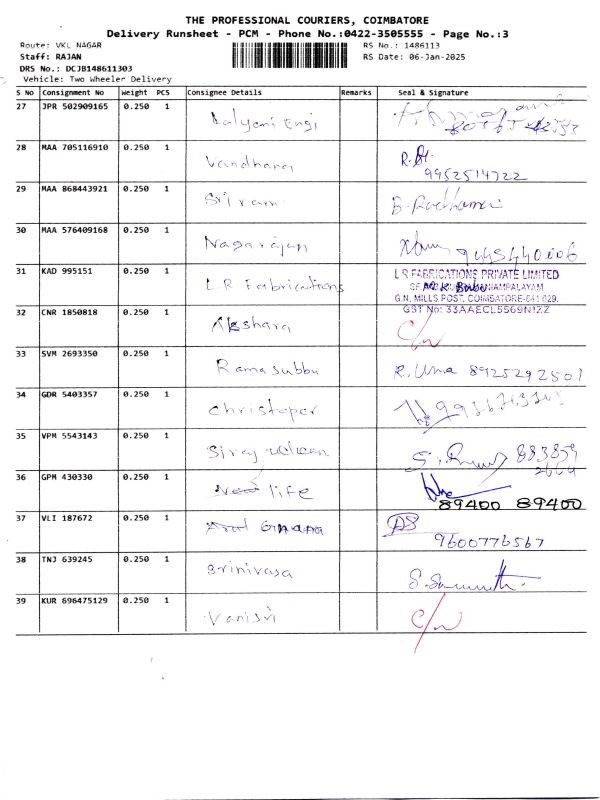 THE PROFESSIONAL COURIERS, COIMBATORE
Delivery Runsheet - PCM - Phone No.:0422-3505555 - Page No.:3
Route: VKL NAGAR RS No.: 1486113
Staff: RAJAN RS Date: 06-Jan-2025
DRS No.: DCJB148611303
Vehicle: Two Wheeler Delivery
S No Consignment No Weight PCS Consignee Details Remarks Seal & Signature
27 JPR 502909165 0.250 1 Kalyani Engi
28 MAA 705116910 0.250 1 Vandhana
9952514722
29 MAA 868443921 0.250 1 Sriram
30 MAA 576409168 0.250 1 Nagarajan
31 KAD 995151 0.250 1 LR Fabrications L R FABRICATIONS PRIVATE LIMITED
G.N. MILLS POST, COIMBATORE-641 029.
GST No: 33AAECL5569N1ZZ
32 CNR 1850818 0.250 1 Akshara C/N
33 SVM 2693350 0.250 1 Ramasubbu R. Uma 8925292501
34 GDR 5403357 0.250 1 Christoper
35 VPM 5543143 0.250 1 883859
36 GPM 430330 0.250 1 life
89400 89400
37 VLI 187672 0.250 1
9600776567
38 TNJ 639245 0.250 1 Srinivasa
39 KUR 696475129 0.250 1 Vanisri C/N